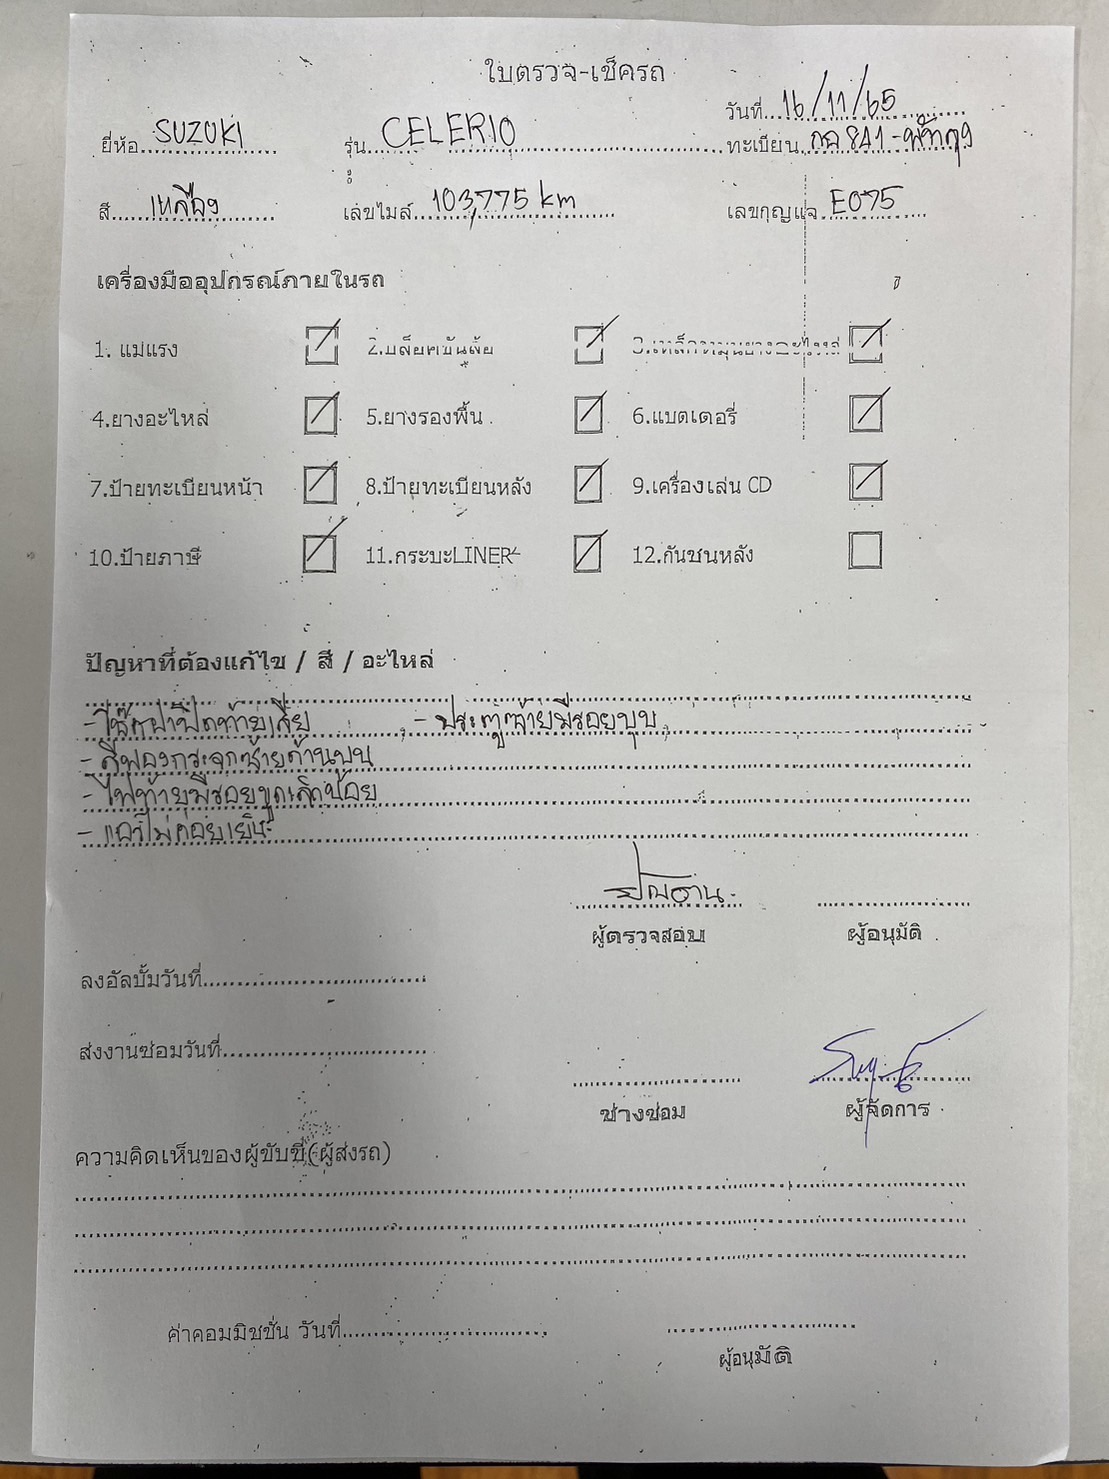 ใบตรวจ-เช็ครถ
วันที่ 16/11/65
ยี่ห้อ SUZUKI รุ่น CELERIO ทะเบียน กฉ 841-พัทลุง
สี เหลือง เลขไมล์ 103,775 km เลขกุญแจ E075
เครื่องมืออุปกรณ์ภายในรถ
1. แม่แรง 2.บล็อคขันล้อ 3.เหล็กหมุนยางอะไหล่
4.ยางอะไหล่ 5.ยางรองพื้น 6.แบตเตอรี่
7.ป้ายทะเบียนหน้า 8.ป้ายทะเบียนหลัง 9.เครื่องเล่น CD
10.ป้ายภาษี 11.กระบะLINER 12.กันชนหลัง
ปัญหาที่ต้องแก้ไข / สี / อะไหล่
- โช๊คฝาปิดท้ายเสีย - ประตูซ้ายมีรอยบุบ
- สีพองกระจกซ้ายด้านบน
- ไฟท้ายมีรอยขูดเล็กน้อย
- แอร์ไม่ค่อยเย็น
ผู้ตรวจสอบ ผู้อนุมัติ
ลงอัลบั้มวันที่
ส่งงานซ่อมวันที่
ช่างซ่อม ผู้จัดการ
ความคิดเห็นของผู้ขับขี่(ผู้ส่งรถ)
ค่าคอมมิชชั่น วันที่
ผู้อนุมัติ